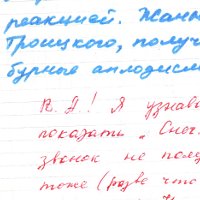 реакцией. Жанн
Троицкого, получ
бурные аплодисм
К. А.! Я узнав
показать „Снег
звонок не поле
тоже (разве что